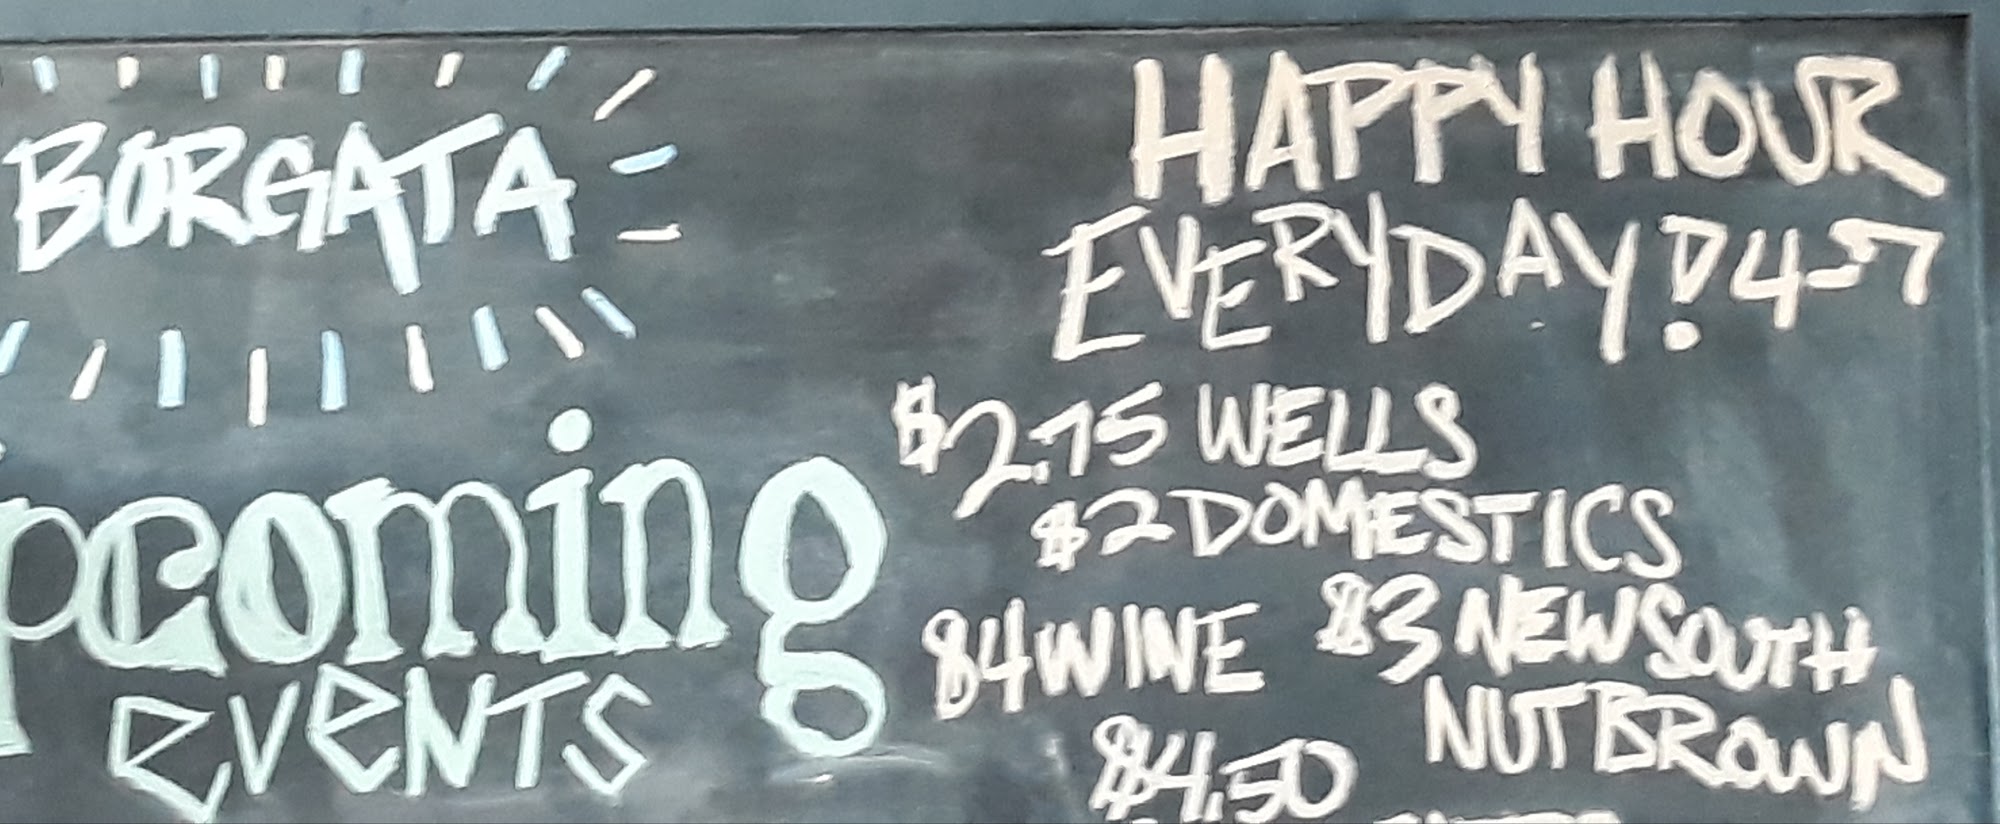 BORGATA
pcoming
eVeNTS
HAPPY HOUR
EVERYDAY! 4-7
$2.75 WELLS
$2 DOMESTICS
$4 WINE
$3 NEW SOUTH
NUT BROWN
$4.50